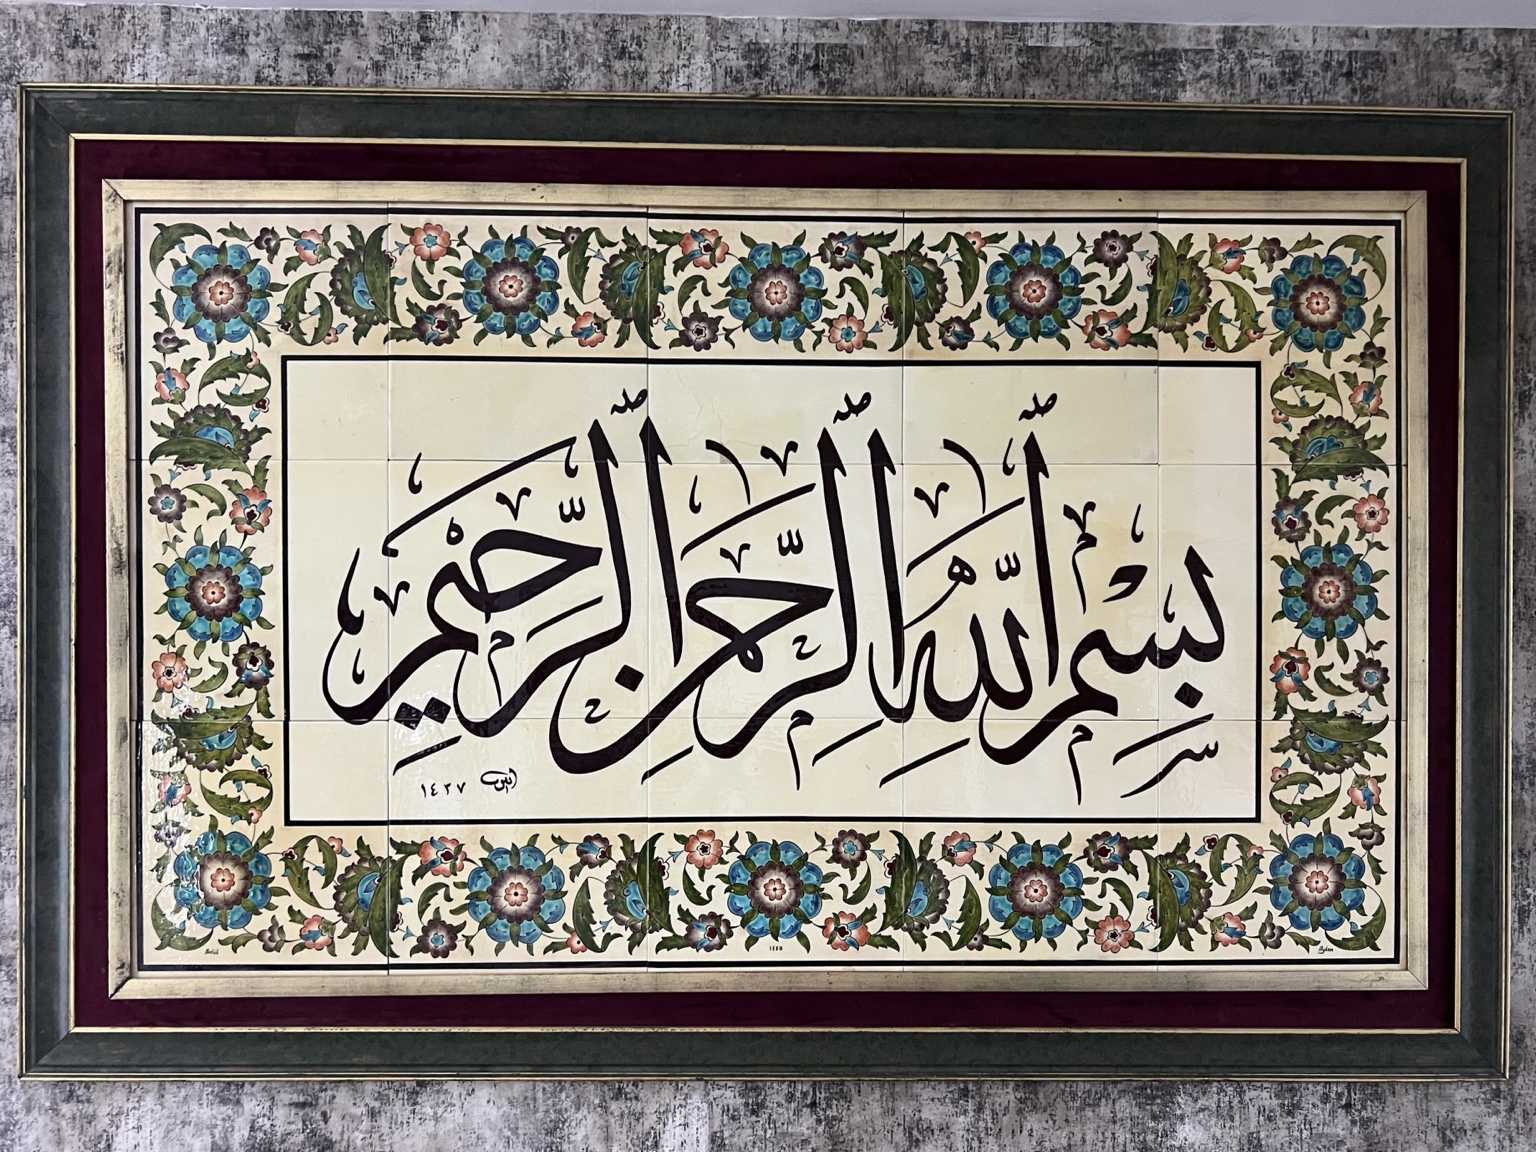 بِسْمِ اللّٰهِ الرَّحْمٰنِ الرَّحِيْمِ
١٤٢٧
١٤٤٥